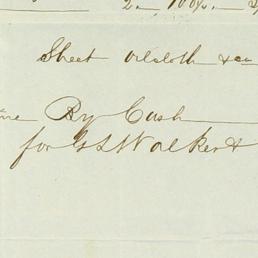 2. 100/2.
Sheet oilcloth &c
By Cash
for G S Walker &